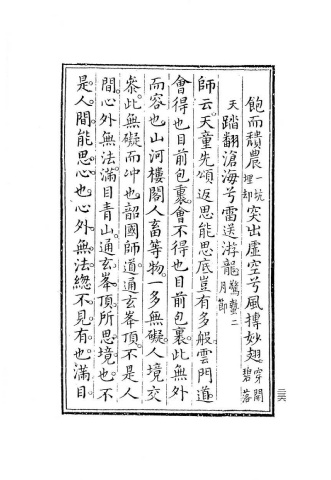 飽而穨農一坑埋却突出虛空兮風摶妙翅穿開碧落
天踏翻滄海兮雷送游龍驚蟄二月節
師云。天童先頌返思能思底豈有多般。雲門道。
會得也目前包裹。會不得也目前包裹。此無外
而容也山河樓閣人畜等物。一多無礙。人境交
參。此無礙而冲也韶國師道。通玄峯頂。不是人
間。心外無法。滿目青山。通玄峯頂所思境也。不
是人間能思心也。心外無法。緫不見有也。滿目